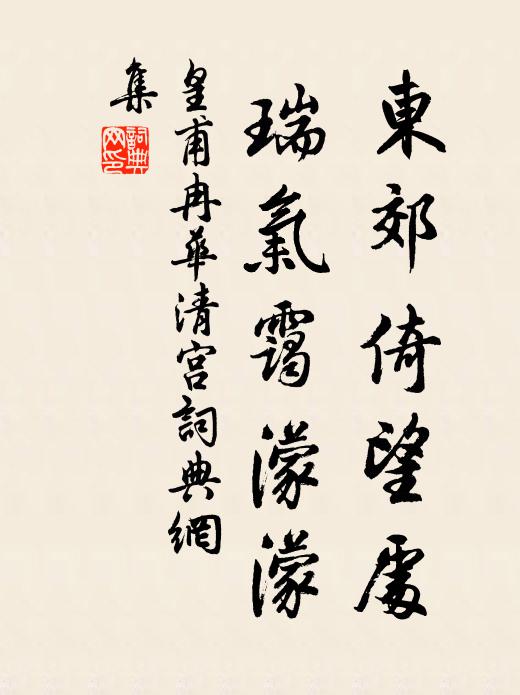 東郊倚望處
瑞氣靄濛濛
皇甫冉華清宮詞典網
集
詞典網印